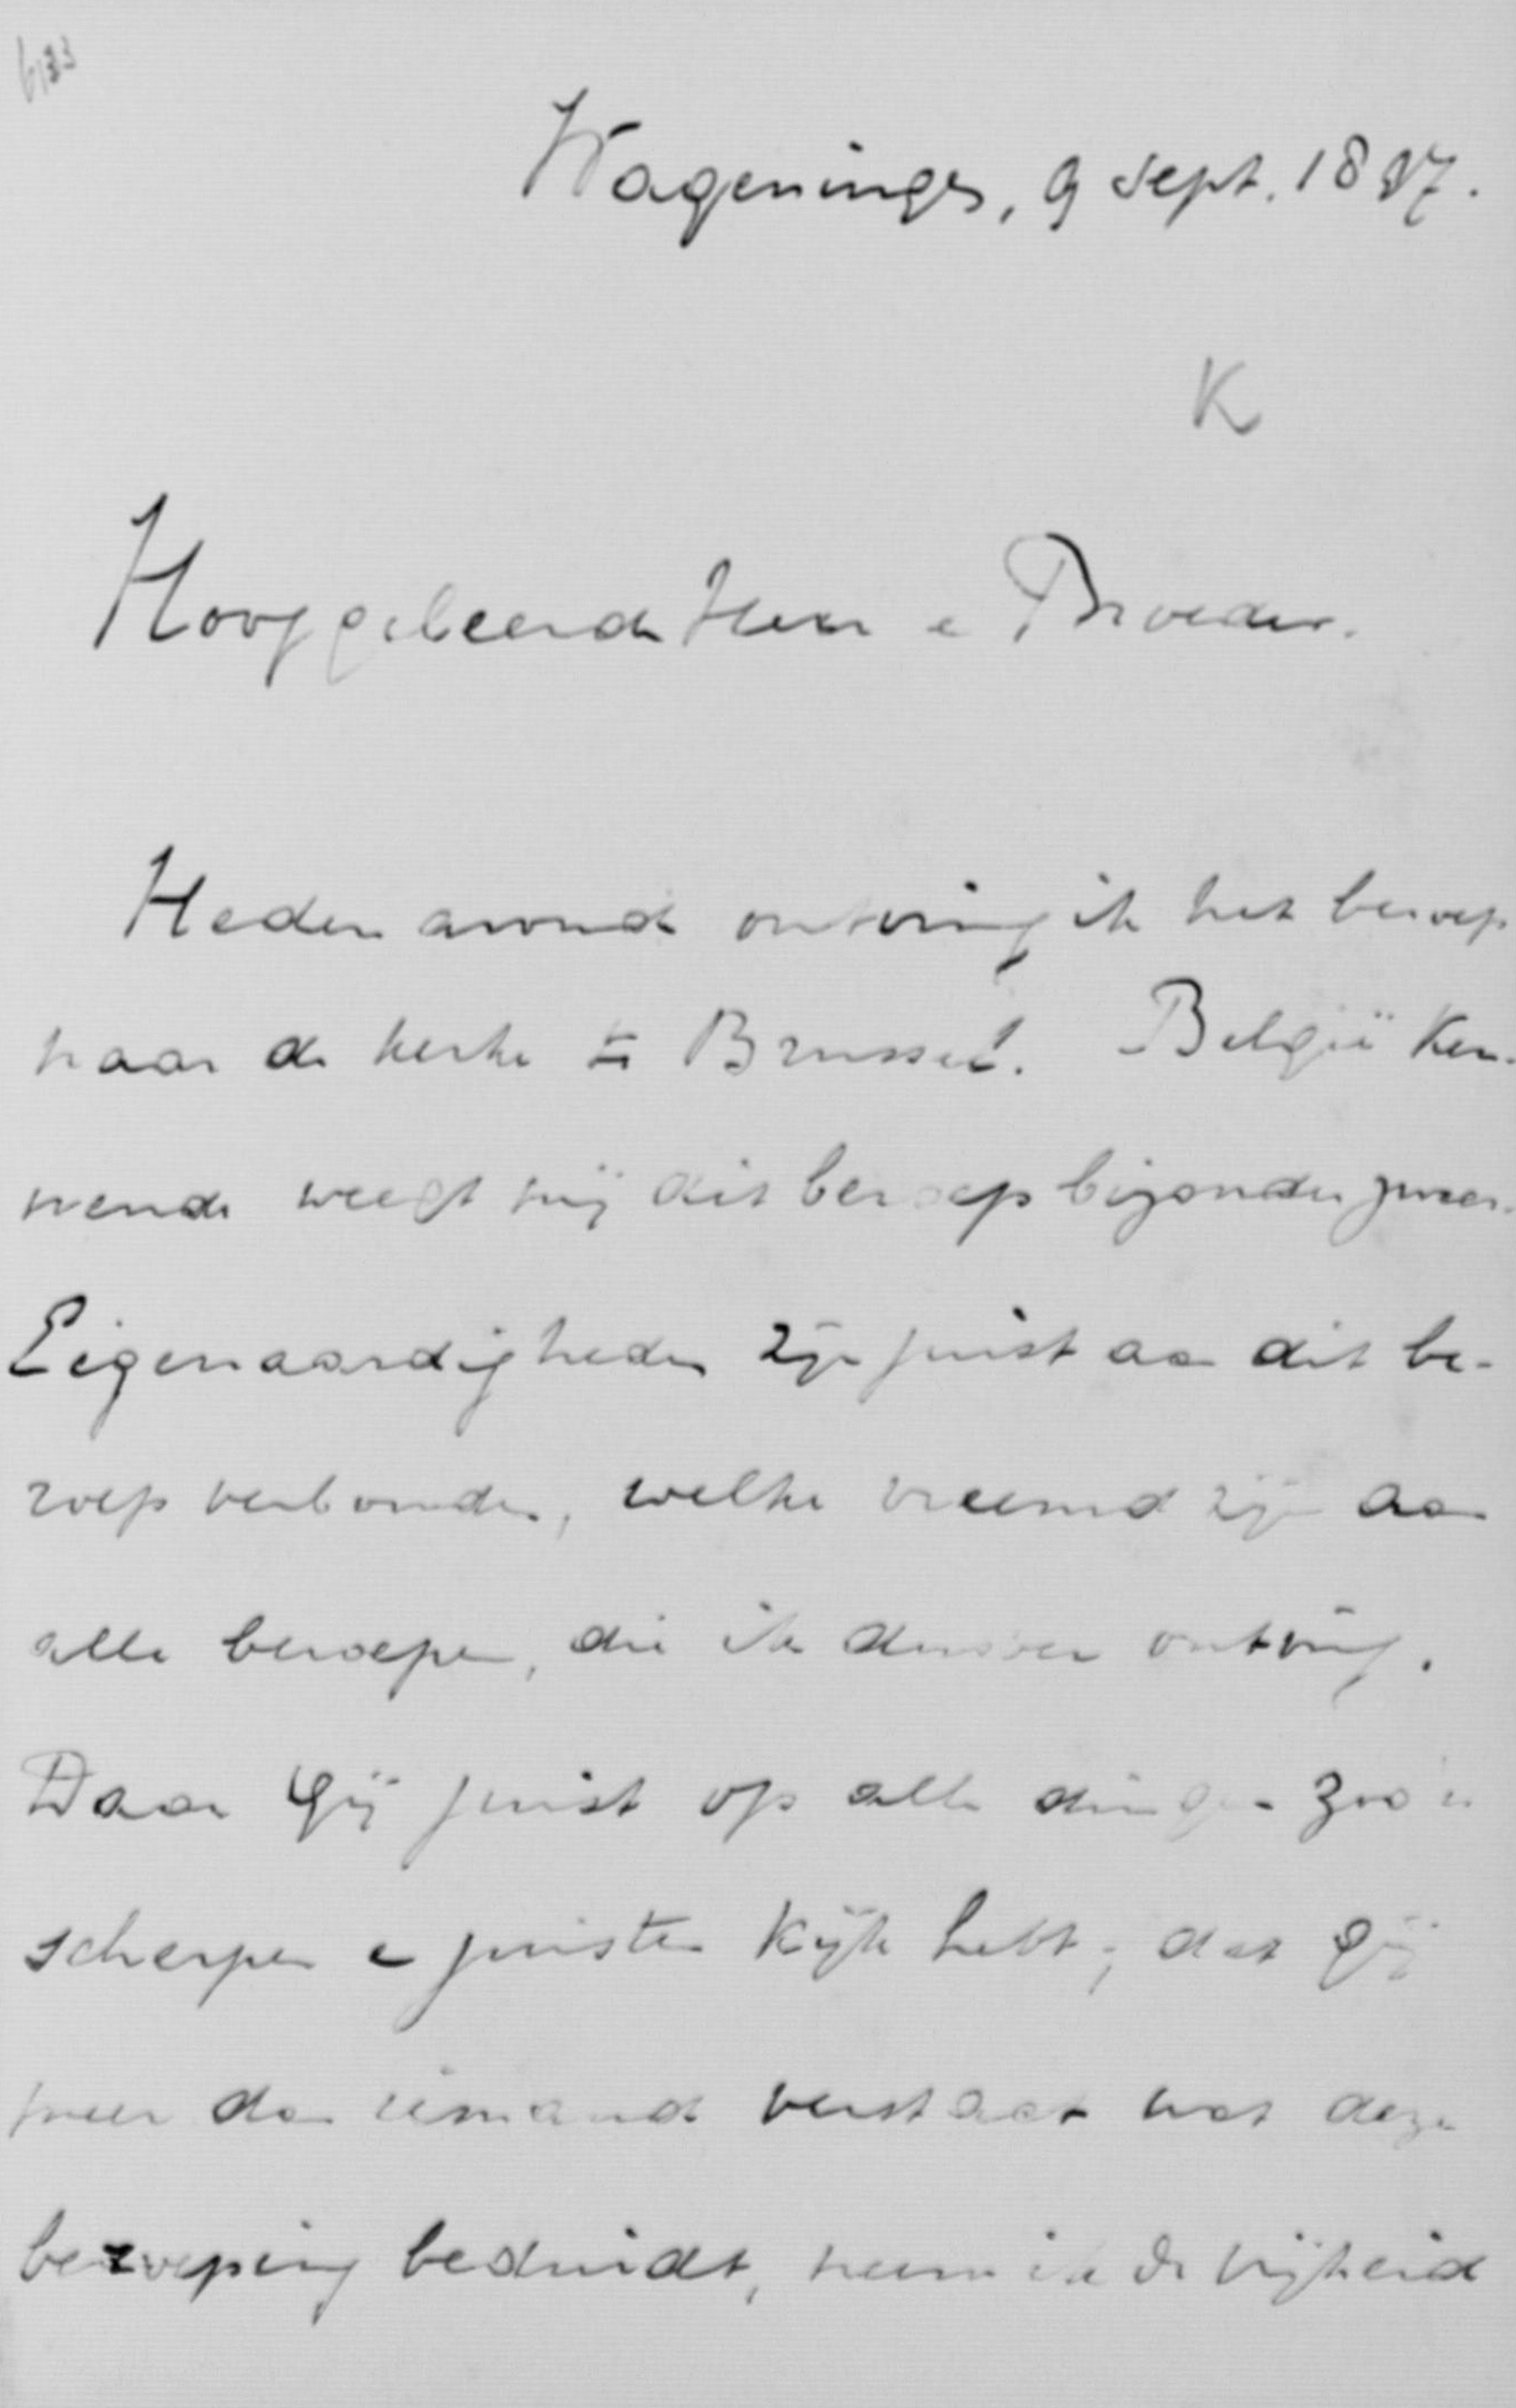 6133
Wageningen, 9 Sept. 1897.
K
Hooggeleerde Heer en Broeder.
Heden avond ontving ik het beroep
naar de kerke te Brussel. België ken-
nende weegt mij dit beroep bijzonder zwaar.
Eigenaardigheden zijn juist aan dit be-
roep verbonden, welke vreemd zijn aan
alle beroepen, die ik dusver ontving.
Daar Gij juist op alle dingen zoo'n
scherpen en juisten kijk hebt; dat Gij
meer dan iemand verstaat wat deze
beroeping beduidt, neem ik de vrijheid